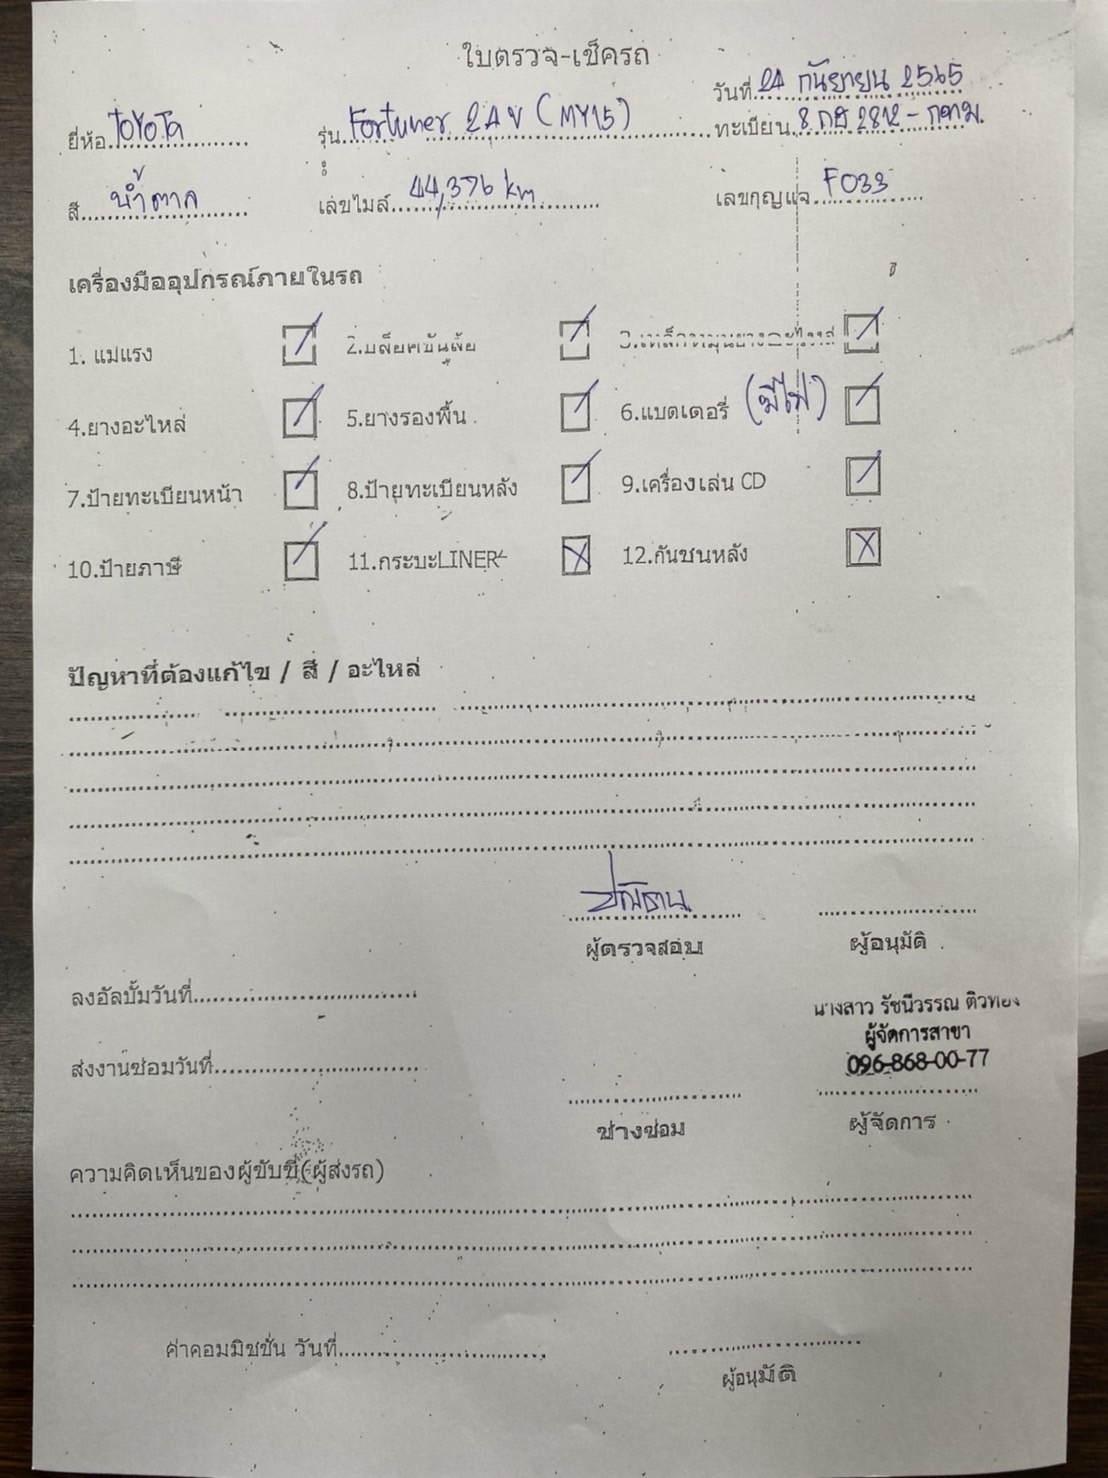 ใบตรวจ-เช็ครถ
วันที่ 24 กันยายน 2565
ยี่ห้อ TOYOTA รุ่น Fortuner 2.4 V (MY15) ทะเบียน 8 กฎ 2812 - กทม.
สี น้ำตาล เลขไมล์ 44,376 km เลขกุญแจ F033
เครื่องมืออุปกรณ์ภายในรถ
1. แม่แรง 2.บล็อคขันล้อ 3.เหล็กหมุนยางอะไหล่
4.ยางอะไหล่ 5.ยางรองพื้น 6.แบตเตอรี่ (มีไฟ)
7.ป้ายทะเบียนหน้า 8.ป้ายทะเบียนหลัง 9.เครื่องเล่น CD
10.ป้ายภาษี 11.กระบะLINER 12.กันชนหลัง
ปัญหาที่ต้องแก้ไข / สี / อะไหล่
ผู้ตรวจสอบ ผู้อนุมัติ
ลงอัลบั้มวันที่
นางสาว รัชนีวรรณ ติวทอง
ผู้จัดการสาขา
096-868-00-77
ส่งงานซ่อมวันที่
ช่างซ่อม ผู้จัดการ
ความคิดเห็นของผู้ขับขี่(ผู้ส่งรถ)
ค่าคอมมิชชั่น วันที่
ผู้อนุมัติ